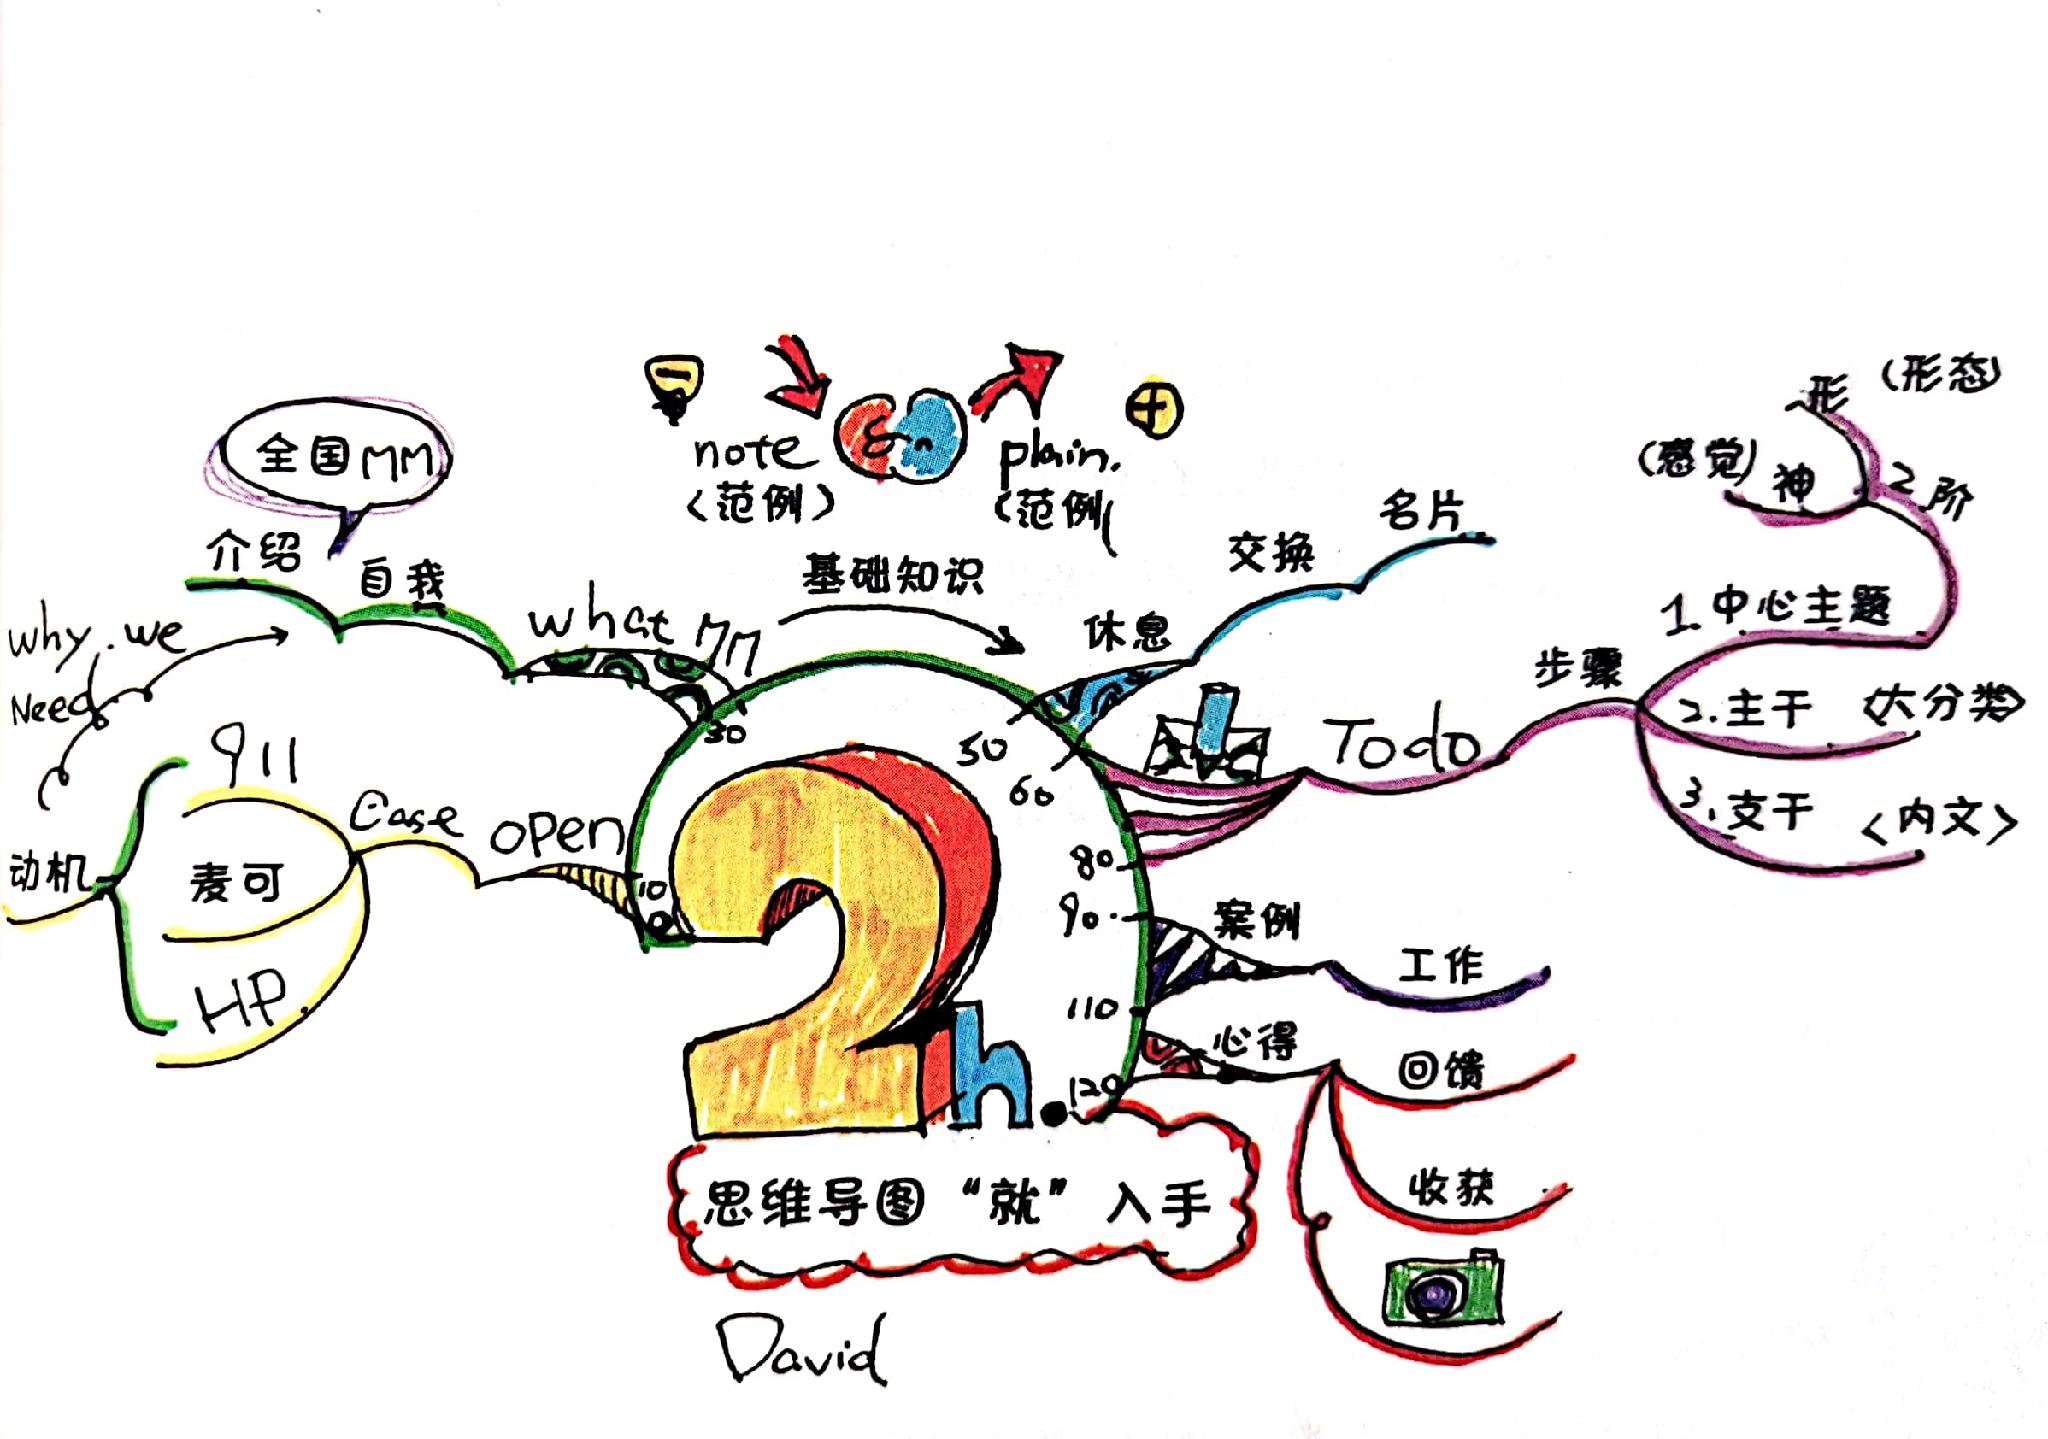 全国MM
介绍
自我
what MM
why. we
Need
911
麦可
HP
动机
Case
open
note
(范例)
&
plain.
(范例(
基础知识
休息
交换
名片
Todo
步骤
1.中心主题
2阶
形 (形态)
(感觉) 神
2.主干 (大分类)
3.支干 <内文>
案例
工作
心得
回馈
收获
0
10
30
50
60
80
90
110
120
2h.
思维导图“就”入手
David